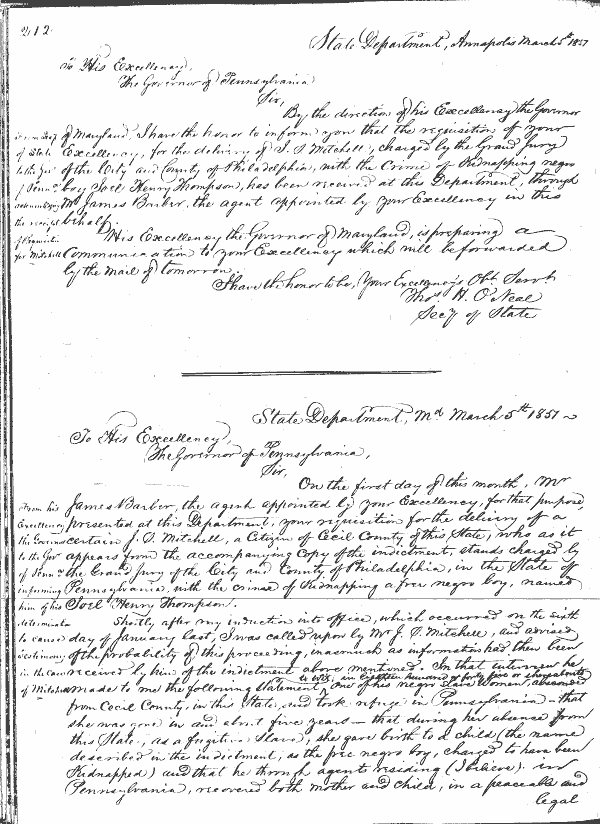 212
State Department, Annapolis March 5th 1851
To His Excellency,
The Governor of Pennsylvania
Sir,
By the direction of his Excellency the Governor
of Maryland, I have the honor to inform you that the requisition of your
Excellency, for the delivery of J. S Mitchell, charged by the Grand Jury
of the City and County of Philadelphia, with the Crime of Kidnapping negro
boy Joel Henry Thompson, has been received at this Department, through
Mr James Barber, the agent appointed by your Excellency in this
behalf.
His Excellency the Governor of Maryland, is preparing a
Communication to your Excellency which will be forwarded
by the mail of tomorrow.
I have the honor to be, Your Excellency's Obt. Servt
Thos H. O'Neal
Secy of State
of State
to the Gov
of Penna
the receipt
of Requisition
for Mitchell
State Department, Md March 5th 1851
To His Excellency,
The Governor of Pennsylvania,
Sir,
On the first day of this month, Mr
James Barber, the agent appointed by your Excellency, for that purpose,
presented at this Department, your requisition for the delivery of a
certain J. S. Mitchell, a Citizen of Cecil County of this State, who as it
appears from the accompanying Copy of the indictment, stands charged by
the Grand Jury of the City and County of Philadelphia, in the State of
Pennsylvania, with the crime of Kidnapping a free negro boy, named
Joel Henry Thompson.
Shortly after my induction into office, which occurred on the sixth
day of January last, I was called upon by Mr J. S. Mitchell, and advised
of the probability of this proceeding, inasmuch as information had then been
received by him of the indictment above mentioned. In that interview he
made to me the following statement, to wit, in Eighteen hundred & forty five or thereabouts
One of his negro slave Women, absconded
from Cecil County, in this State, and took refuge in Pennsylvania — that
she was gone in and about five years — that during her absence from
this State, as a fugitive Slave, she gave birth to a child (the name
described in the indictment, as the free negro boy, charged to have been
Kidnapped) and that he through agents residing (I believe) in
Pennsylvania, recovered both mother and child, in a peaceable and
legal
From his
Excellency
the Governor
to the Gov
of Penna
informing
him of his
determination
to cause
testimony
in the case
of Mitchell